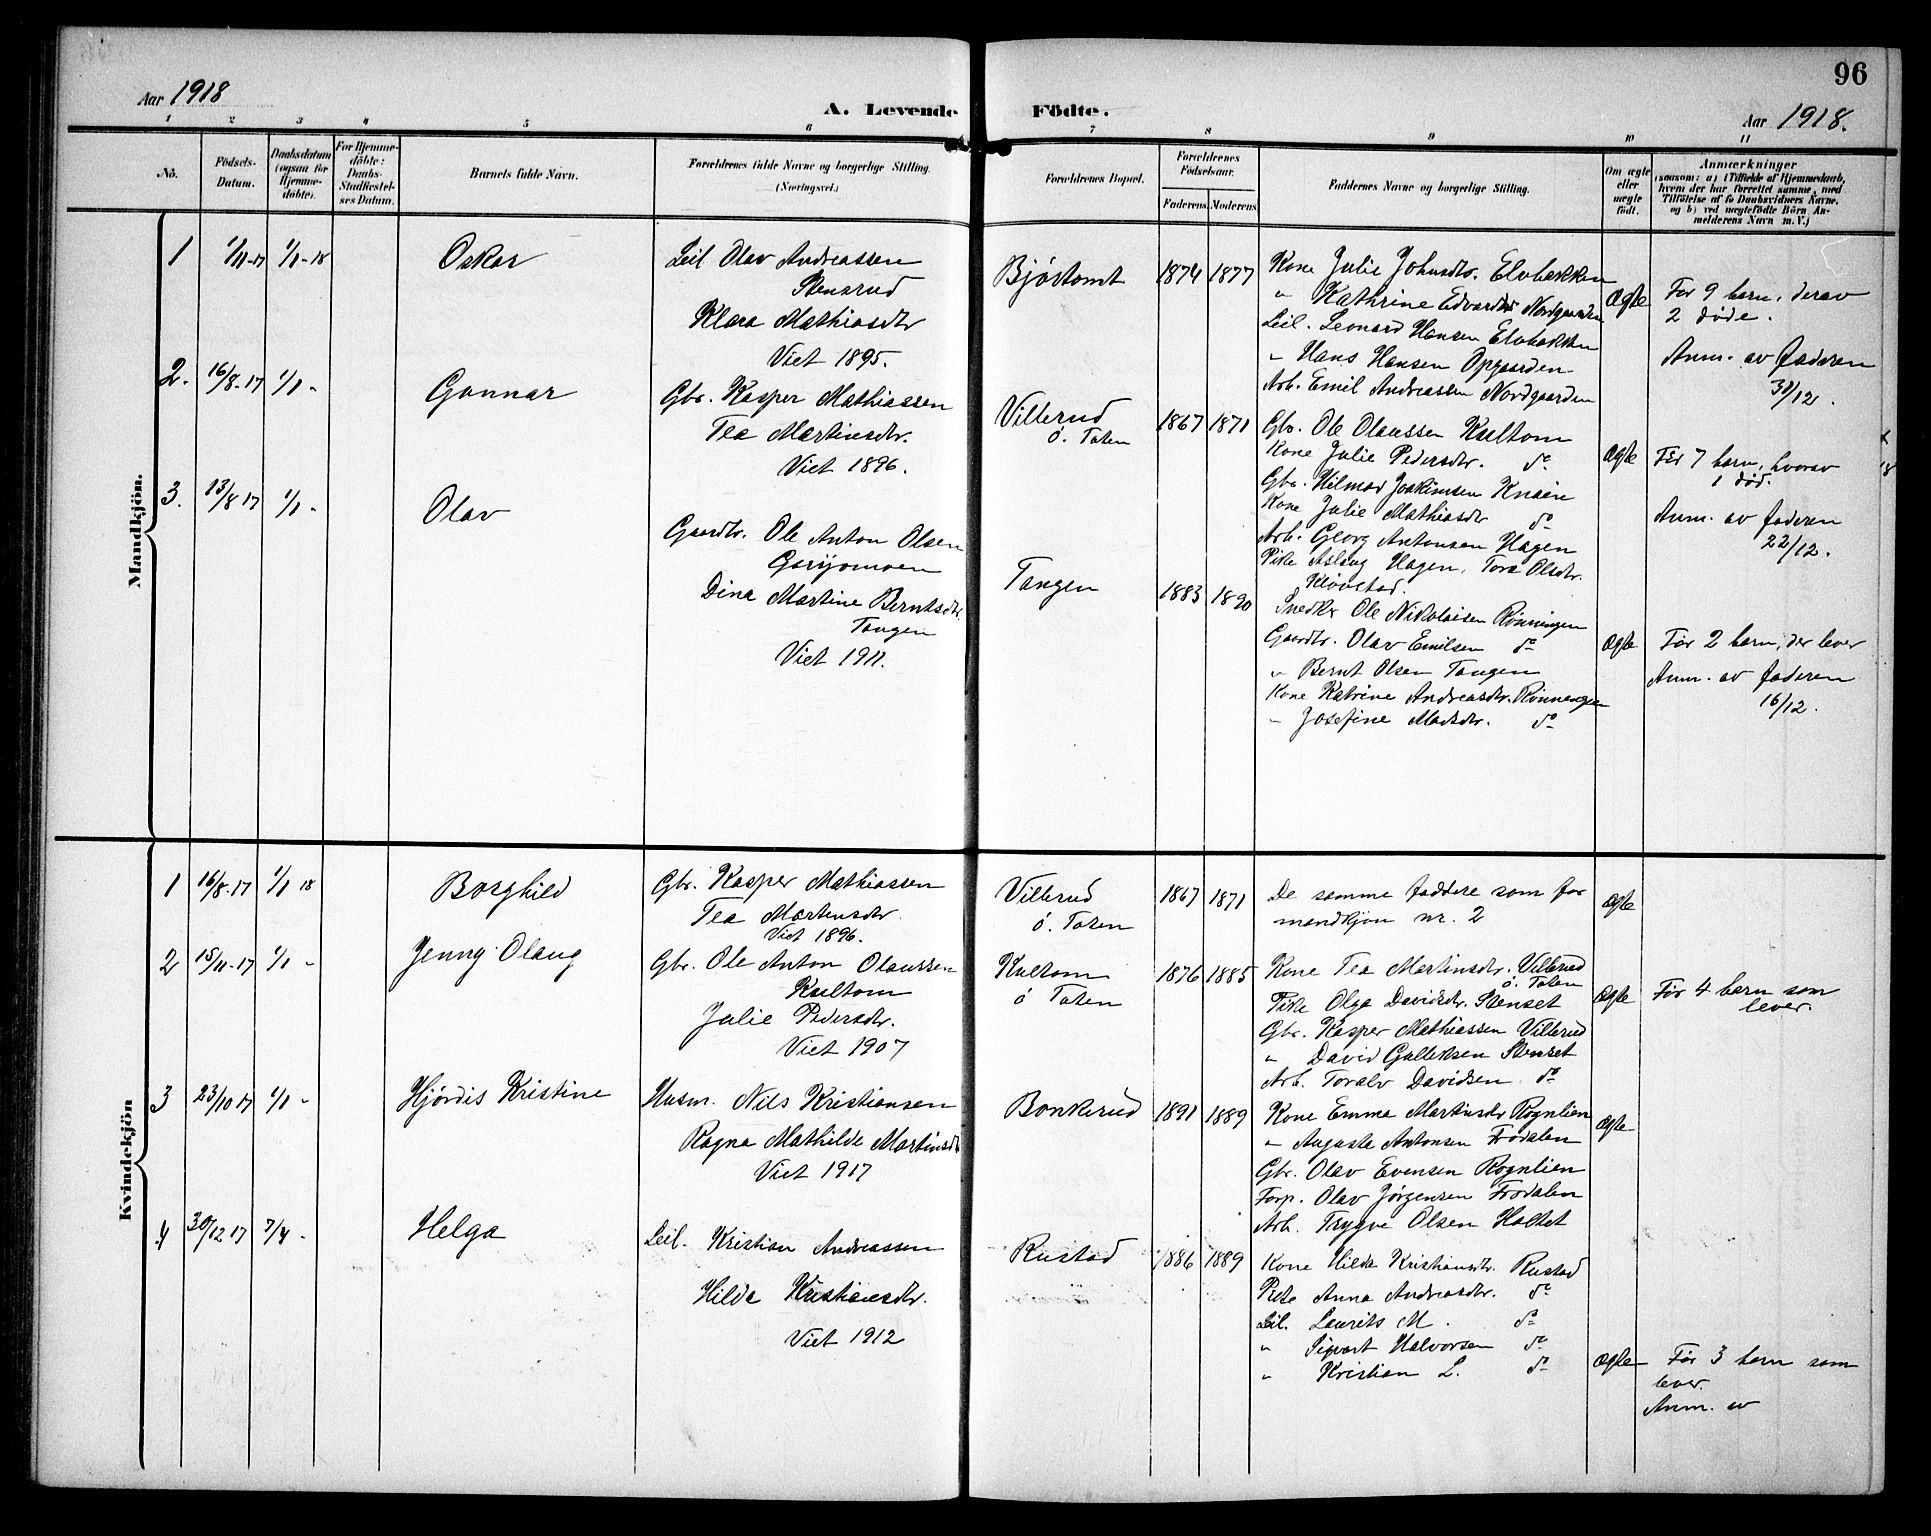 96
Aar 1918
A. Levende Födte.
Aar 1918.
1 2 3 4 5 6 7 8 9 10 11
No.
Födsels-
Datum.
Daabsdatum
(ogsaa for
Hjemme-
döbte).
For Hjemme-
döbte:
Daabs-
Stadfæstel-
ses Datum.
Barnets fulde Navn.
Forældrenes fulde Navne og borgerlige Stilling.
(Næringsvei.)
Forældrenes Bopæl.
Forældrenes
Födselsaar.
Faderens Moderens
Faddernes Navne og borgerlige Stilling.
Om ægte
eller
uægte
født.
Anmærkninger
(saasom: a) i Tilfælde af Hjemmedaab,
hvem der har forrettet samme, med
Tilföielse af to Daabsvidners Navne,
og b) ved uægtefödte Börn An-
melderens Navn m. V.)
Mandkjön.
1 1/11-17 1/1-18
Oskar
Leil Olav Andreassen
Stensrud
Klara Mathiasdtr
Viet 1895.
Bjøstomt
1874 1877
Kone Julie Johnsdtr. Elvbakken
" Kathrine Edvardtr Nordgaarden
Leil. Leonard Hansen Elvbakken
" Hans Hansen Opgaarden
Arb. Emil Andreassen Nordgaarden
Ægte
Før 9 barn, derav
2 døde.
Anm. av faderen
31/12.
2. 16/8-17 1/1-
Gunnar
Gbr. Kasper Mathiassen
Tea Martinsdtr.
Viet 1896.
Villerud
ö. Toten
1867 1871
Gbr. Ole Olaussen Kultom
Kone Julie Pedersdtr. do
Gbr. Hilmar Joakimsen Knaën
Kone Julie Mathiasdtr do
Arb. Georg Antonsen Hagen
Pike Aslaug Hagen, Tora Olsdtr.
Kløvstad.
Ægte
Før 7 barn, hvorav
1 død.
Anm. av faderen
22/12.
3. 13/8 17 1/1-
Olav
Gaardbr. Ole Anton Olsen
Dina Martine Berntsdtr.
Tangen
Viet 1911.
Tangen
1883 1890
Snedker Ole Nikolaisen Rønningen
Gaardbr. Olav Emilsen do
" Bernt Olsen Tangen
Kone Katrine Andreasdtr. Rønningen
" Josefine Madsdtr. do
Ægte
Før 2 barn, der lever
Anm. av faderen
16/12.
Kvindekjön
1 16/8-17 1/1 18
Borghild
Gbr. Kasper Mathiassen
Tea Martinsdtr.
Viet 1896.
Villerud
ö. Toten
1867 1871
De samme faddere som for
mandkjøn nr. 2
Ægte
2 15/11-17 1/1 -
Jenny Olaug
Gbr. Ole Anton Olaussen
Kultom
Julie Pedersdtr.
Viet 1907
Kultom
ö Toten
1876 1885
Kone Tea Martinsdtr. Villerud
ö. Toten
Pike Olga Davidsdtr. Stenset
Gbr. Kasper Mathiassen Villerud
" David Gulleksen Stenset
Arb. Toralv Davidsen do
Ægte
Før 4 barn som
lever.
3 23/10 17 1/1 -
Hjørdis Kristine
Husm. Nils Kristiansen
Ragna Mathilde Martinsdtr
Viet 1917
Bonkerud
1891 1889
Kone Emma Martinsdtr Rognlien
" Auguste Antonsen Frodalen
Gbr. Olav Evensen Rognlien
Forp. Olav Jørgensen Frodalen
Arb. Trygve Olsen Holtet
Ægte
4 30/12 17 7/4 -
Helga
Leil. Kristian Andreassen
Hilda Kristiansdtr.
Viet 1912
Rustad
1886 1889
Kone Hilda Kristiansdtr. Rustad
Pike Anna Andreasdtr. do
Leil. Laurits M. do
" Sigvart Halvorsen do
" Kristian L. do
Ægte
Før 3 barn som
lever.
Anm. av